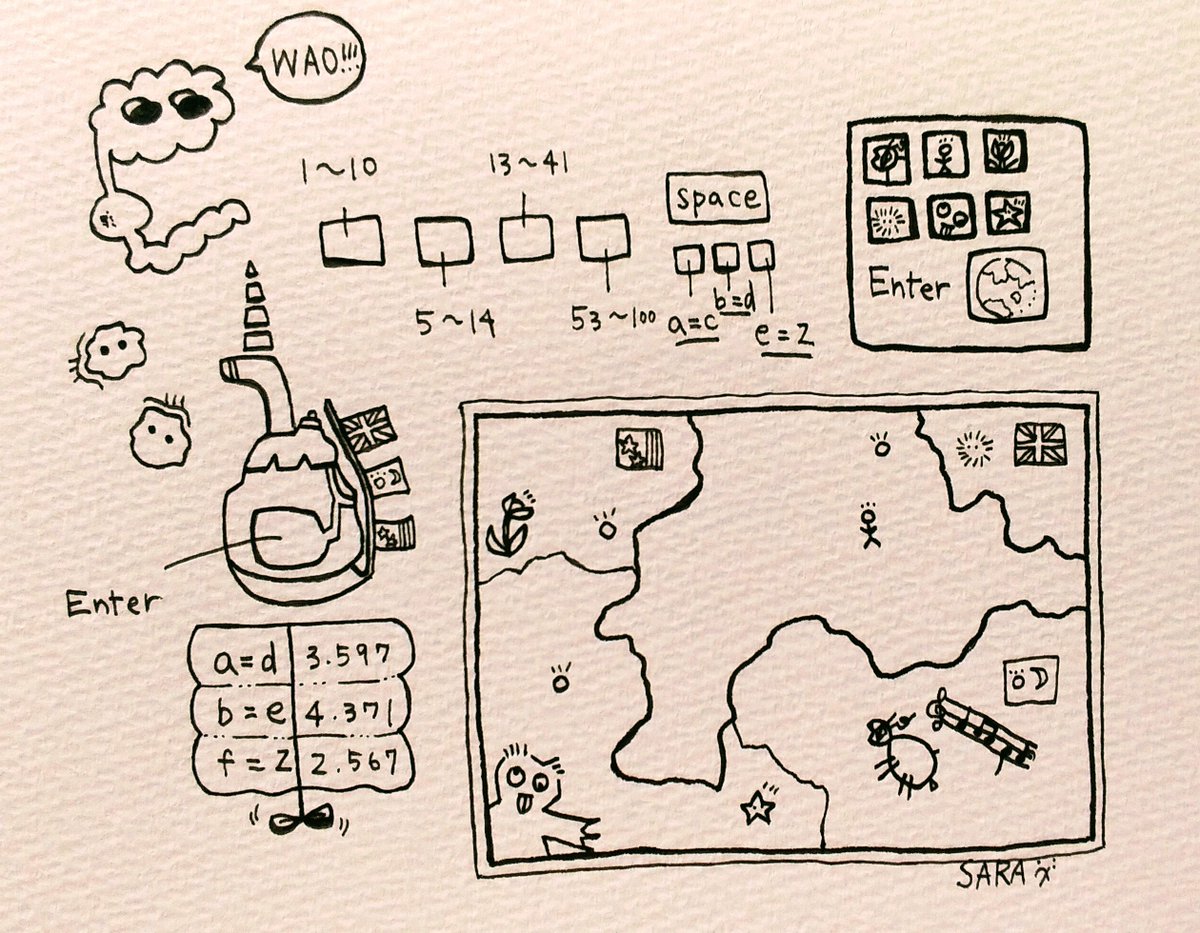 WAO!!!
1~10
13~41
5~14
53~100
space
a=c
b=d
e=z
Enter
Enter
a=d 3.597
b=e 4.371
f=z 2.567
SARA